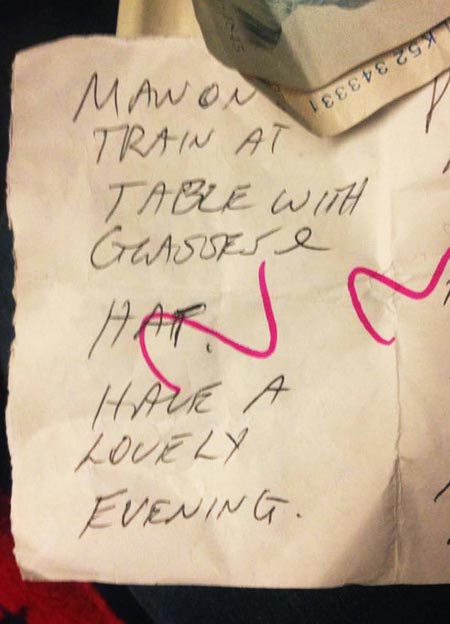 LK52343331
MAN ON
TRAIN AT
TABLE WITH
GLASSES &
HAT.
HAVE A
LOVELY
EVENING.